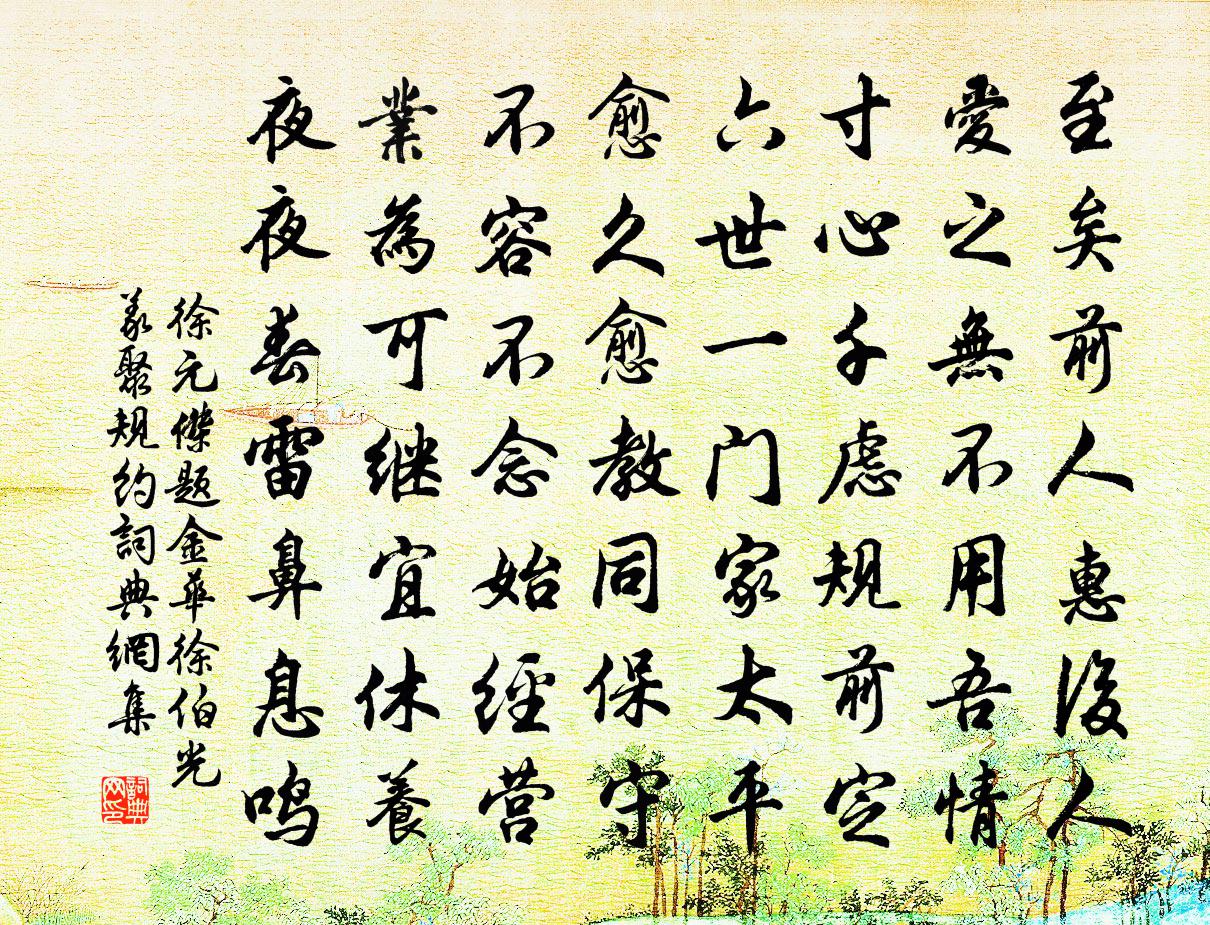 至矣前人惠後人
愛之無不用吾情
寸心千慮規前定
六世一门家太平
愈久愈教同保守
不容不念始經营
業為可继宜休養
夜夜春雷鼻息鸣
徐元傑題金華徐伯光
義聚規約詞典網集
詞典
网印